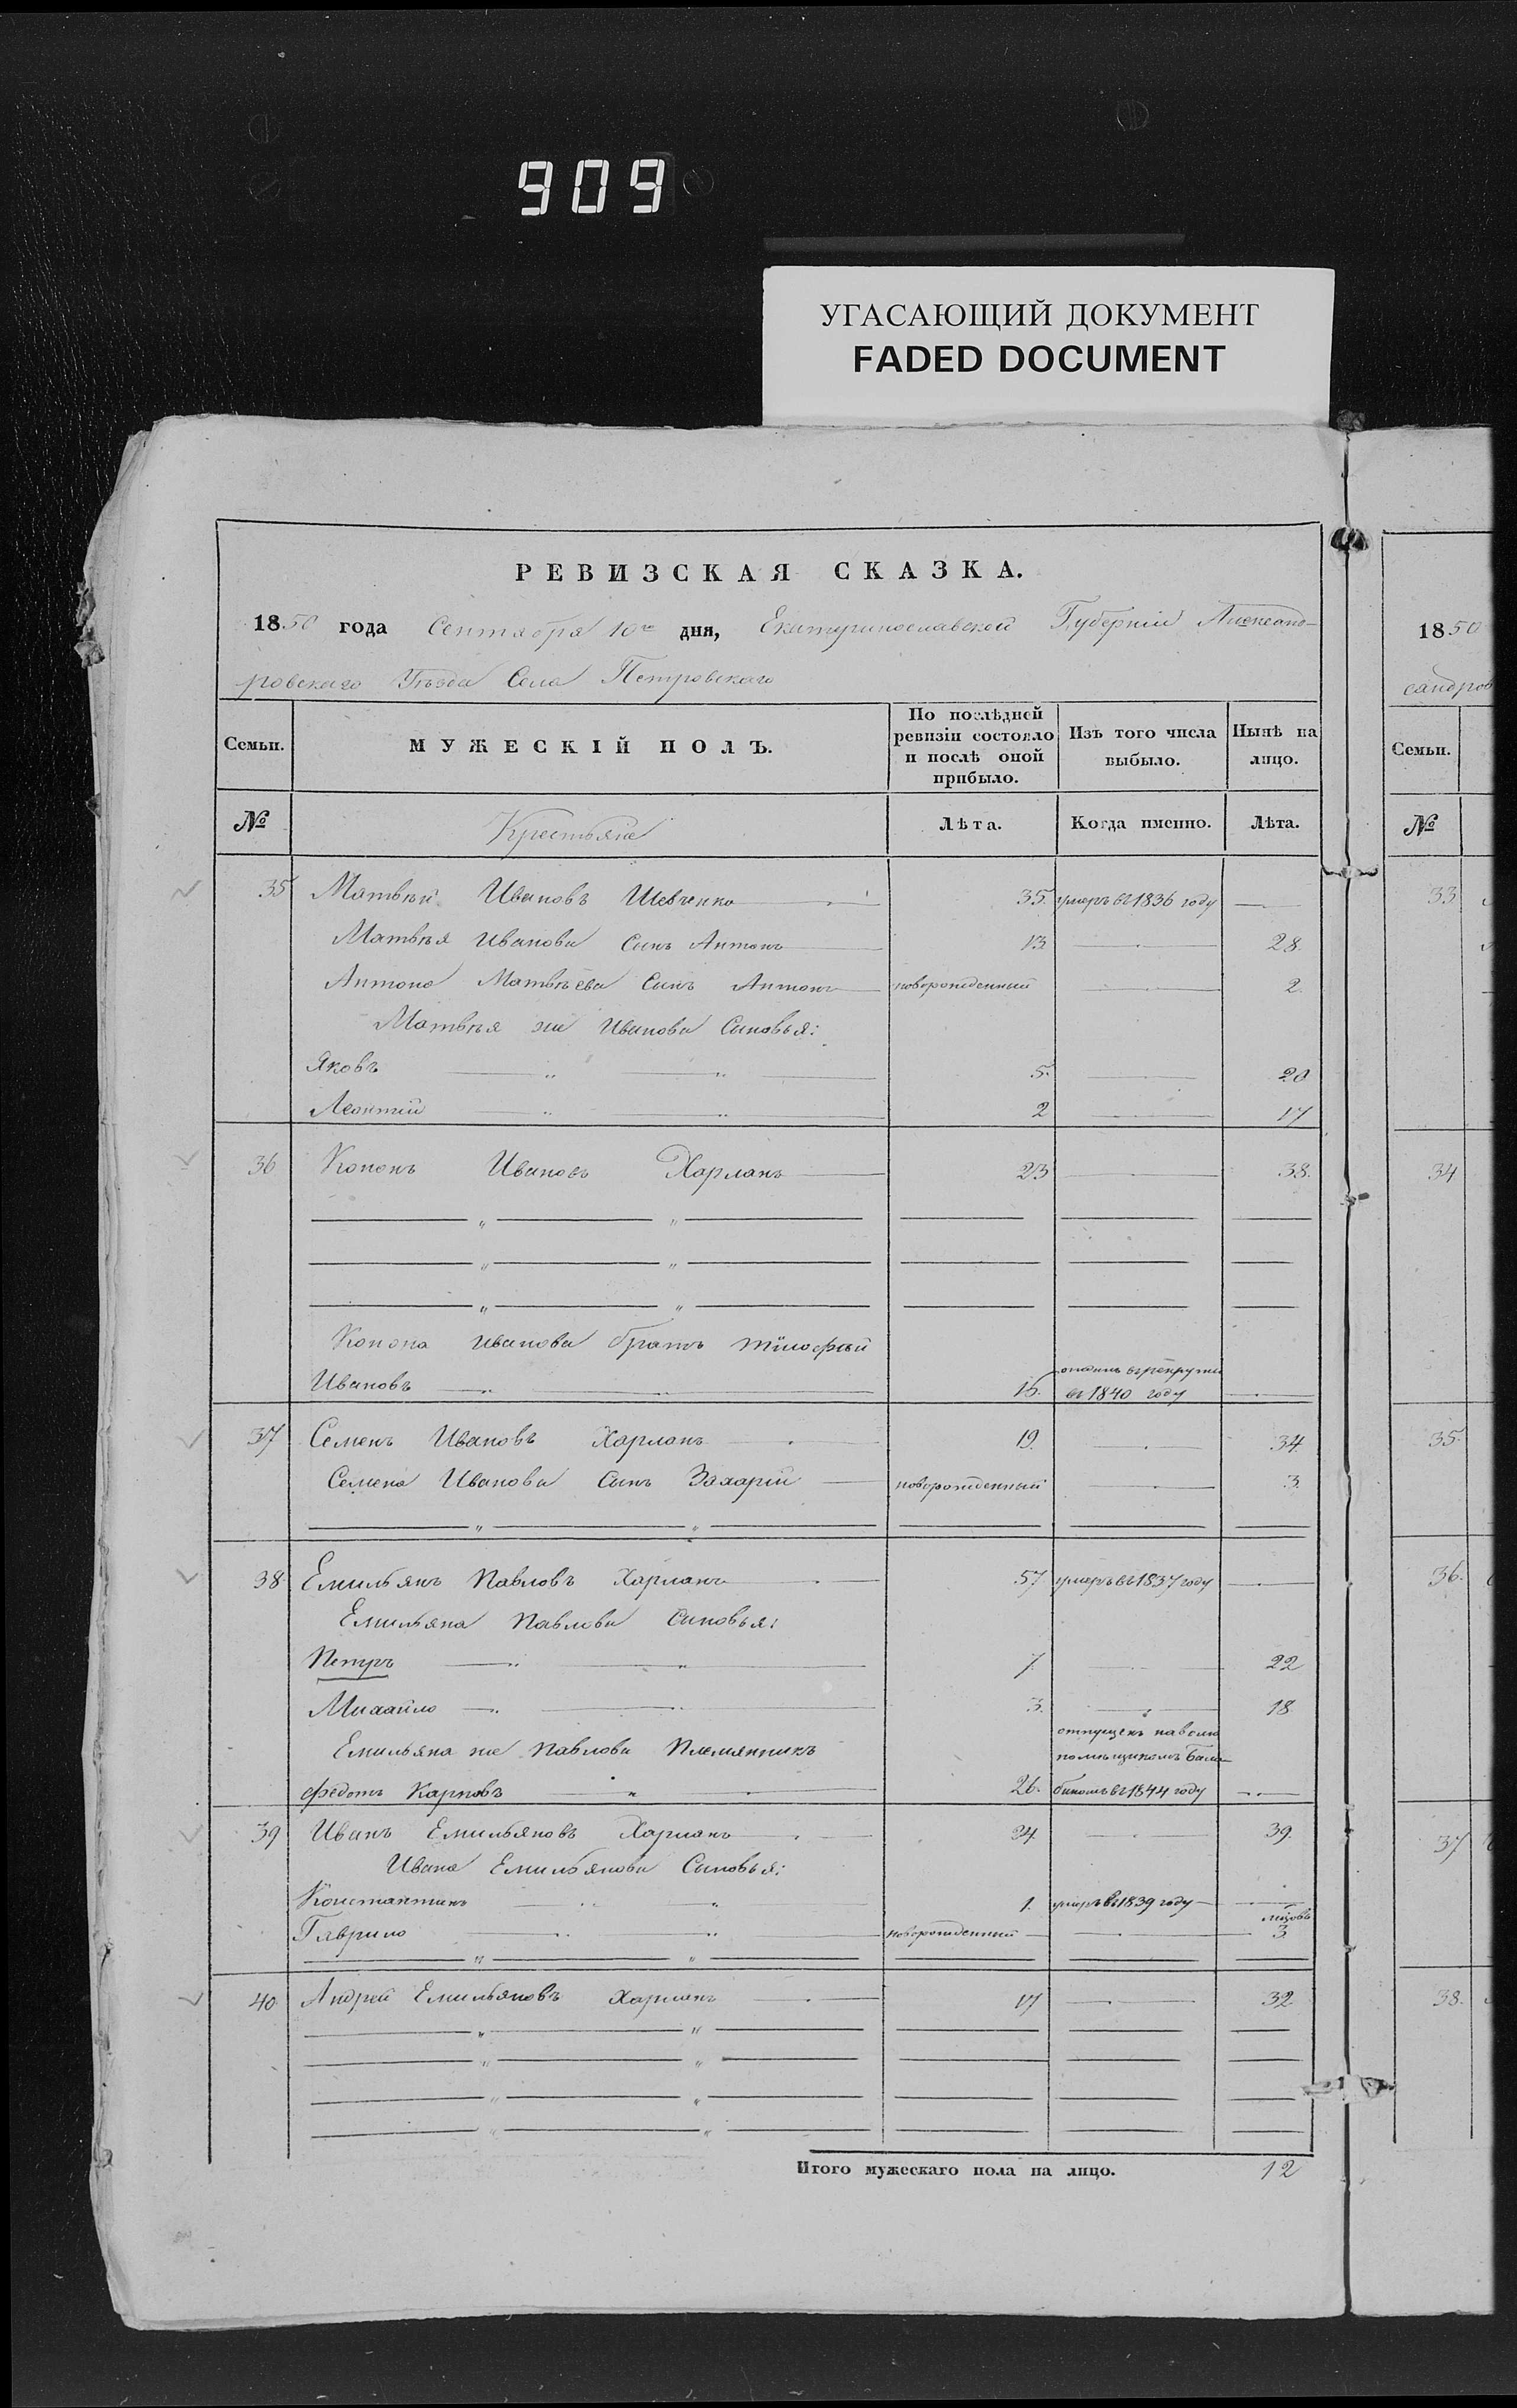 909
УГАСАЮЩИЙ ДОКУМЕНТ
FADED DOCUMENT
РЕВИЗСКАЯ СКАЗКА.
1850 года Сентября 10го дня, Екатеринославской Губернии Александ-
ровскаго Уѣзда Села Петровскаго
Семьи. МУЖЕСКІЙ ПОЛЪ. По послѣдней ревизіи состояло и послѣ оной прибыло. Изъ того числа выбыло. Нынѣ на лицо.
№ Крестьяне Лѣта. Когда именно. Лѣта.
35 Матвѣй Ивановъ Шевченко 35. умеръ въ 1836 году
Матвѣя Иванова Сынъ Антонъ 13 28.
Антона Матвѣева Сынъ Антонъ новорожденный 2.
Матвѣя же Иванова Сыновья:
Яковъ 5. 20
Леонтий 2 17
36 Кононъ Ивановъ Харланъ 23 38.
Конона Иванова братъ Тимофѣй
Ивановъ 15. отданъ въ рекруты
въ 1840 году
37 Семенъ Ивановъ Харланъ 19. 34.
Семена Иванова Сынъ Захарій новорожденный 3.
38. Емильянъ Павловъ Харланъ 57 умеръ въ 1837 году
Емильяна Павлова Сыновья:
Петръ 7. 22
Михайло 3. 18.
Емильяна же Павлова Племянникъ отпущенъ на волю
помѣщикомъ Бала-
Федотъ Карповъ 26. бинымъ въ 1844 году
39 Иванъ Емильяновъ Харланъ 24. 39.
Ивана Емильянова Сыновья:
Константинъ 1. умеръ въ 1839 году
Гаврило новорожденный 3
40. Андрей Емильяновъ Харланъ 17 32
Итого мужескаго пола на лицо. 12
1850
сандров
Семьи.
№
33
34
35.
36.
37
38.